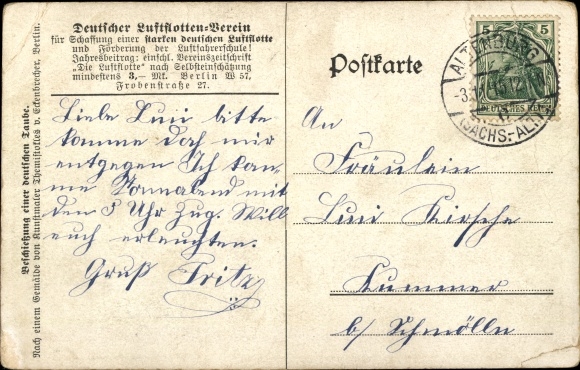 Deutscher Luftflotten-Verein
für Schaffung einer starken deutschen Luftflotte
und Förderung der Luftfahrerschule!
Jahresbeitrag: einschl. Vereinszeitschrift
„Die Luftflotte“ nach Selbsteinschätzung
mindestens 3,— Mk. Berlin W 57,
Frobenstraße 27.
Liebe Luni bitte
komme doch mir
entgegen Ich kom-
me Sonnabend mit
den 5 Uhr Zug. Will
euch erleuchten.
Gruß Fritz
Beschießung einer deutschen Taube.
Nach einem Gemälde von Kunstmaler Themistokles v. Eckenbrecher, Berlin.
Postkarte
5 5
DEUTSCHES REICH
ALTENBURG
(SACHS.-ALT.)
An
Fräulein
Luni Kirsche
Kummer
b/ Schmölln